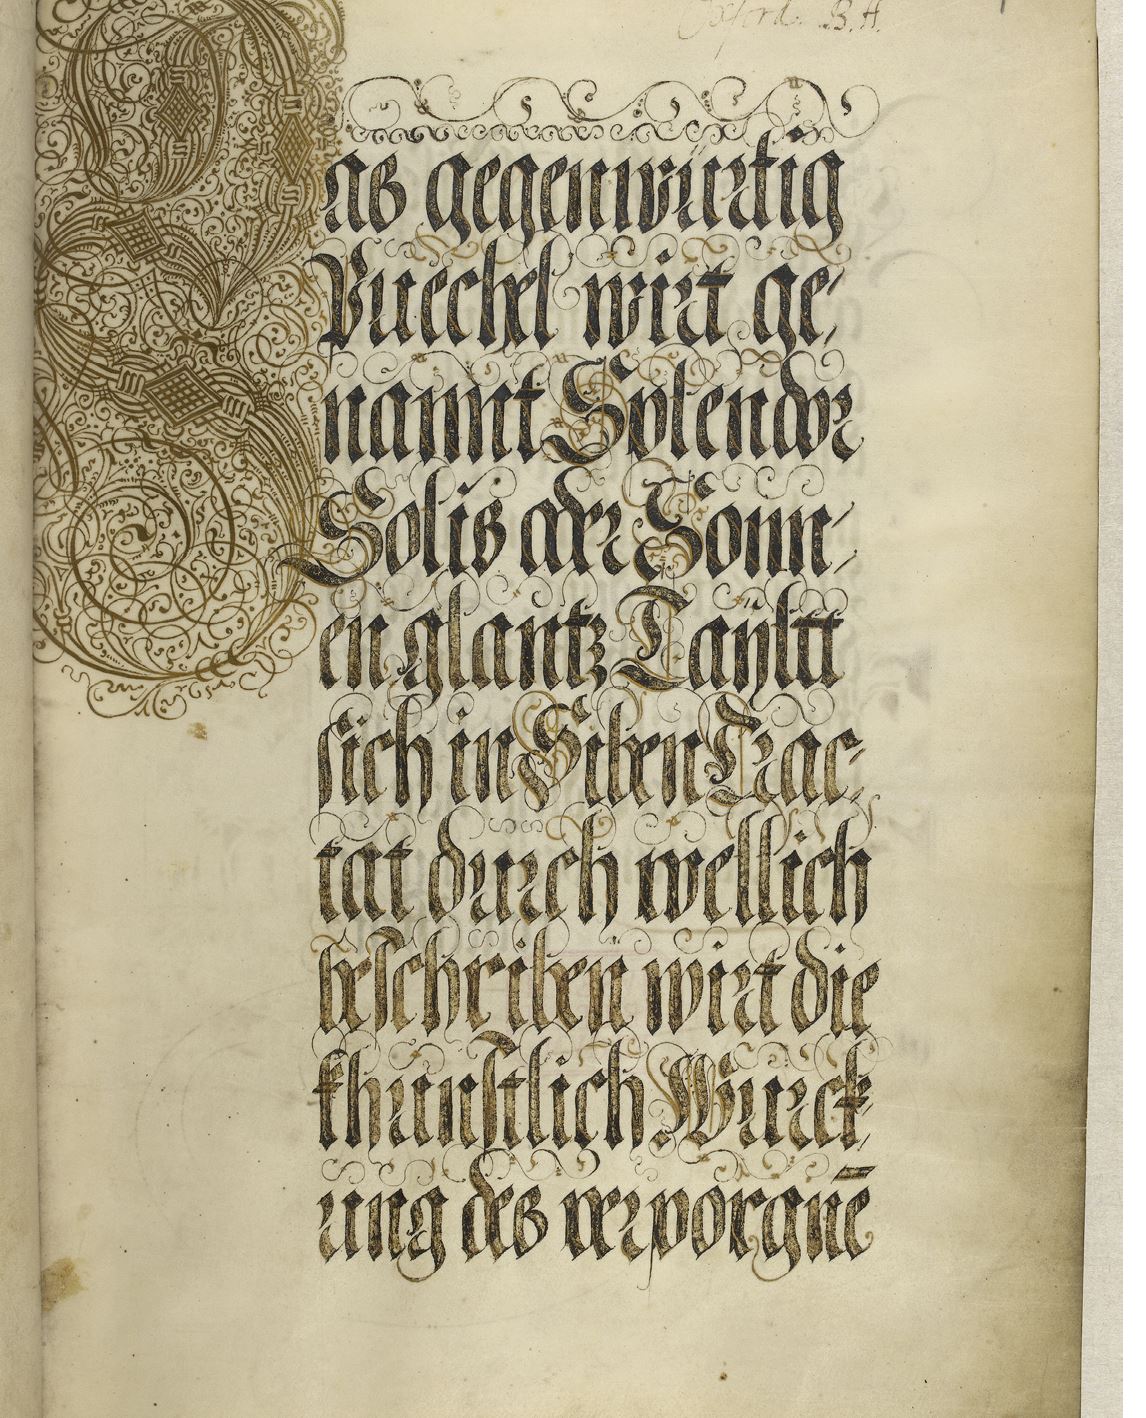 Oxford. B. H.
Das gegenwürtig
Puechel wirt ge-
nannt Splendor
Solis oder Sonn-
en glantz Taÿltt
sich in Siben Trac-
tat durch wellich
beschriben wirt die
khunstlich Würck-
ung des verporgnē